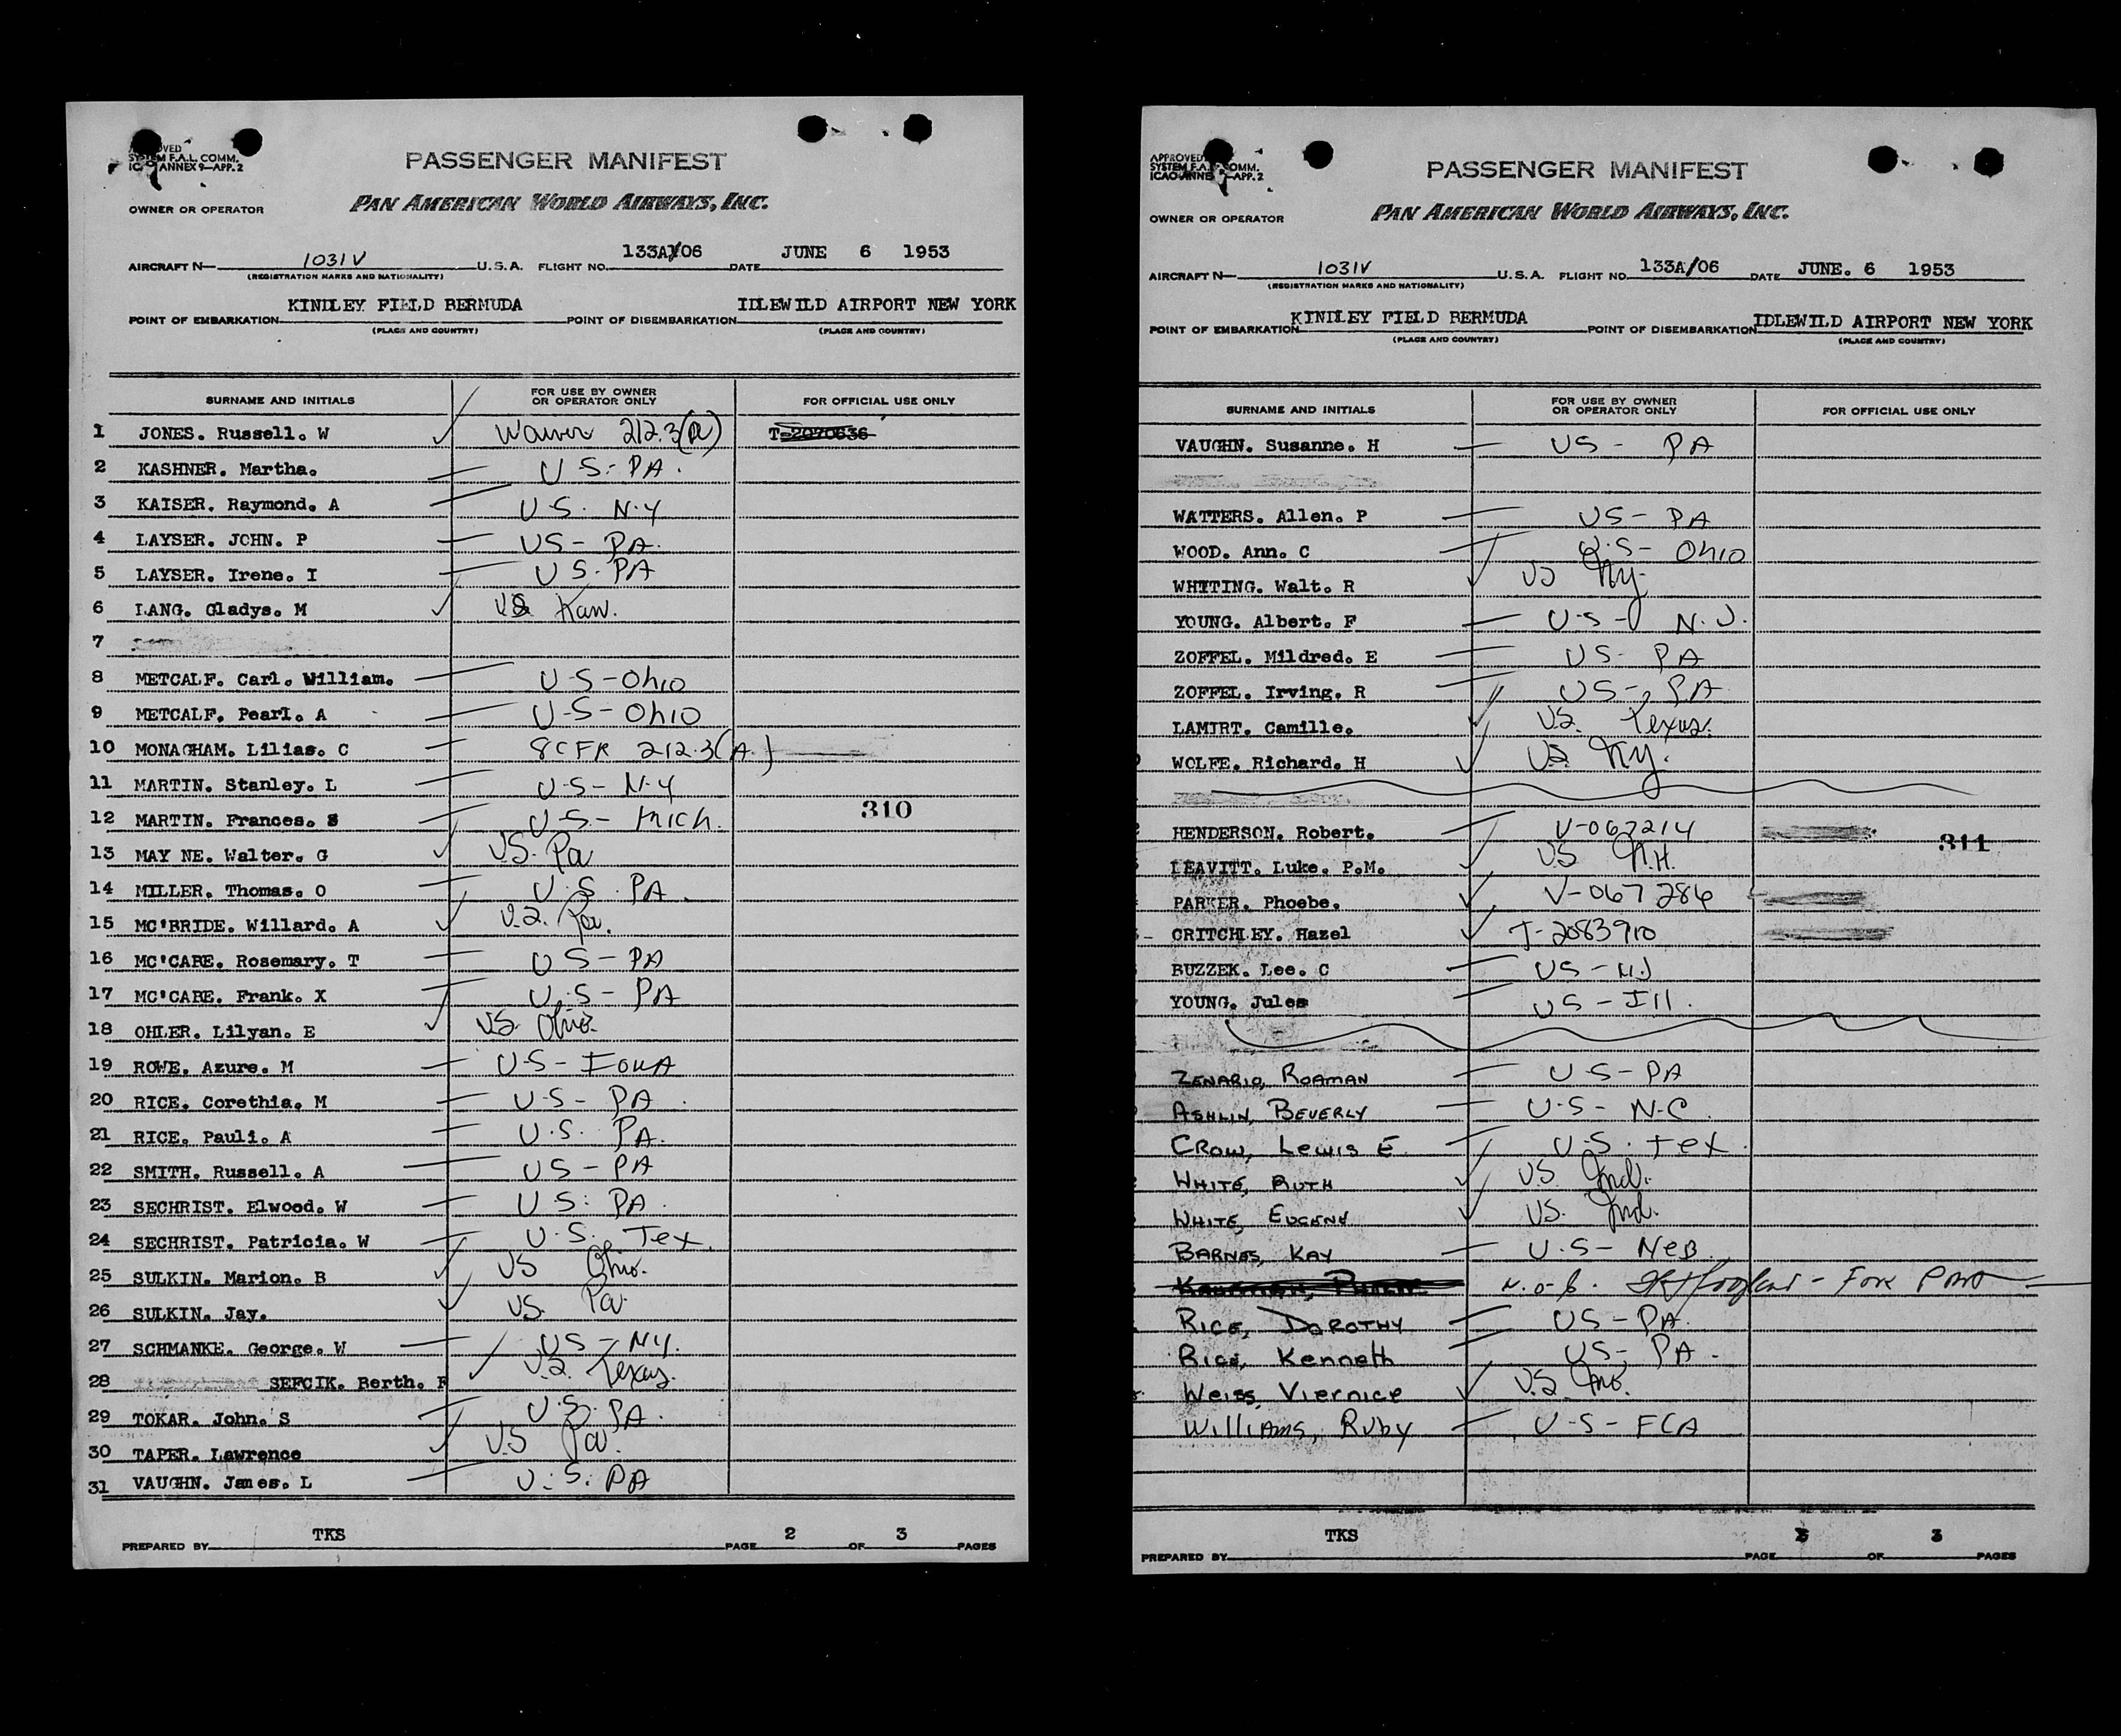 APPROVED
SYSTEM F.A.L. COMM.
ICAO ANNEX 9—APP. 2
PASSENGER MANIFEST
PAN AMERICAN WORLD AIRWAYS, INC.
OWNER OR OPERATOR
AIRCRAFT N— 1031V U.S.A. FLIGHT NO. 133A/06 DATE JUNE 6 1953
(REGISTRATION MARKS AND NATIONALITY)
POINT OF EMBARKATION KINDLEY FIELD BERMUDA POINT OF DISEMBARKATION IDLEWILD AIRPORT NEW YORK
(PLACE AND COUNTRY) (PLACE AND COUNTRY)
SURNAME AND INITIALS FOR USE BY OWNER OR OPERATOR ONLY FOR OFFICIAL USE ONLY
1 JONES. Russell. W Waiver 212.3(a) T-2070636
2 KASHNER. Martha. U S - PA.
3 KAISER. Raymond. A U.S. N.Y
4 LAYSER. JOHN. P US - PA.
5 LAYSER. Irene. I U S. PA
6 LANG. Gladys. M US Kan.
7
8 METCALF. Carl. William. U-S-Ohio
9 METCALF. Pearl. A U-S-Ohio
10 MONAGHAM. Lilias. C 8CFR 212.3(A)
11 MARTIN. Stanley. L U-S- N.Y
310
12 MARTIN. Frances. S U-S- Mich.
13 MAY NE. Walter. G US. Pa
14 MILLER. Thomas. O U.S. PA.
15 MC'BRIDE. Willard. A U.S. Pa.
16 MC'CABE. Rosemary. T U S - PA
17 MC'CABE. Frank. X U.S - PA
18 OHLER. Lilyan. E US. Ohio.
19 ROWE. Azure. M U-S- IOWA
20 RICE. Corethia. M U-S- PA
21 RICE. Paull. A U.S. PA.
22 SMITH. Russell. A US - PA
23 SECHRIST. Elwood. W U S: PA.
24 SECHRIST. Patricia. W U.S. Tex.
25 SULKIN. Marion. B US Ohio.
26 SULKIN. Jay. US. Pa.
27 SCHMANKE. George. W US - NY.
28 SEFCIK. Berth. F U.S. Texas.
29 TOKAR. John. S U.S. PA.
30 TAPER. Lawrence U.S Pa.
31 VAUGHN. James. L U.S. PA
PREPARED BY TKS PAGE 2 OF 3 PAGES
APPROVED
SYSTEM F.A.L. COMM.
ICAO ANNEX 9—APP. 2
PASSENGER MANIFEST
PAN AMERICAN WORLD AIRWAYS, INC.
OWNER OR OPERATOR
AIRCRAFT N— 1031V U.S.A. FLIGHT NO. 133A/06 DATE JUNE. 6 1953
(REGISTRATION MARKS AND NATIONALITY)
POINT OF EMBARKATION KINDLEY FIELD BERMUDA POINT OF DISEMBARKATION IDLEWILD AIRPORT NEW YORK
(PLACE AND COUNTRY) (PLACE AND COUNTRY)
SURNAME AND INITIALS FOR USE BY OWNER OR OPERATOR ONLY FOR OFFICIAL USE ONLY
VAUGHN. Susanne. H US - PA
WATTERS. Allen. P US - PA
WOOD. Ann. C U.S - Ohio
WHITING. Walt. R US Ky.
YOUNG. Albert. F U-S- N.J.
ZOFFEL. Mildred. E US- PA
ZOFFEL. Irving. R US - PA
LAMIRT. Camille. US. Texas.
WOLFE. Richard. H US Ky.
HENDERSON. Robert. V-067214
311
LEAVITT. Luke. P.M. US N.H.
PARKER. Phoebe. V-067286
CRITCHLEY. Hazel T-2083910
BUZZEK. Lee. C US - NJ
YOUNG. Jules US - Ill.
ZENARIO, ROAMAN U-S-PA
ASHLIN, BEVERLY U-S- N-C
CROW, LEWIS E U.S. Tex.
WHITE, RUTH US Ind.
WHITE, EUGENE US. Ind.
BARNES, KAY U.S- NEB.
N.o.b.
RICE, DOROTHY US - PA.
RICE, Kenneth US- PA.
Weiss, Viernice U.S. Mo.
WilliAms, Ruby U-S-FLA
PREPARED BY TKS PAGE 3 OF 3 PAGES